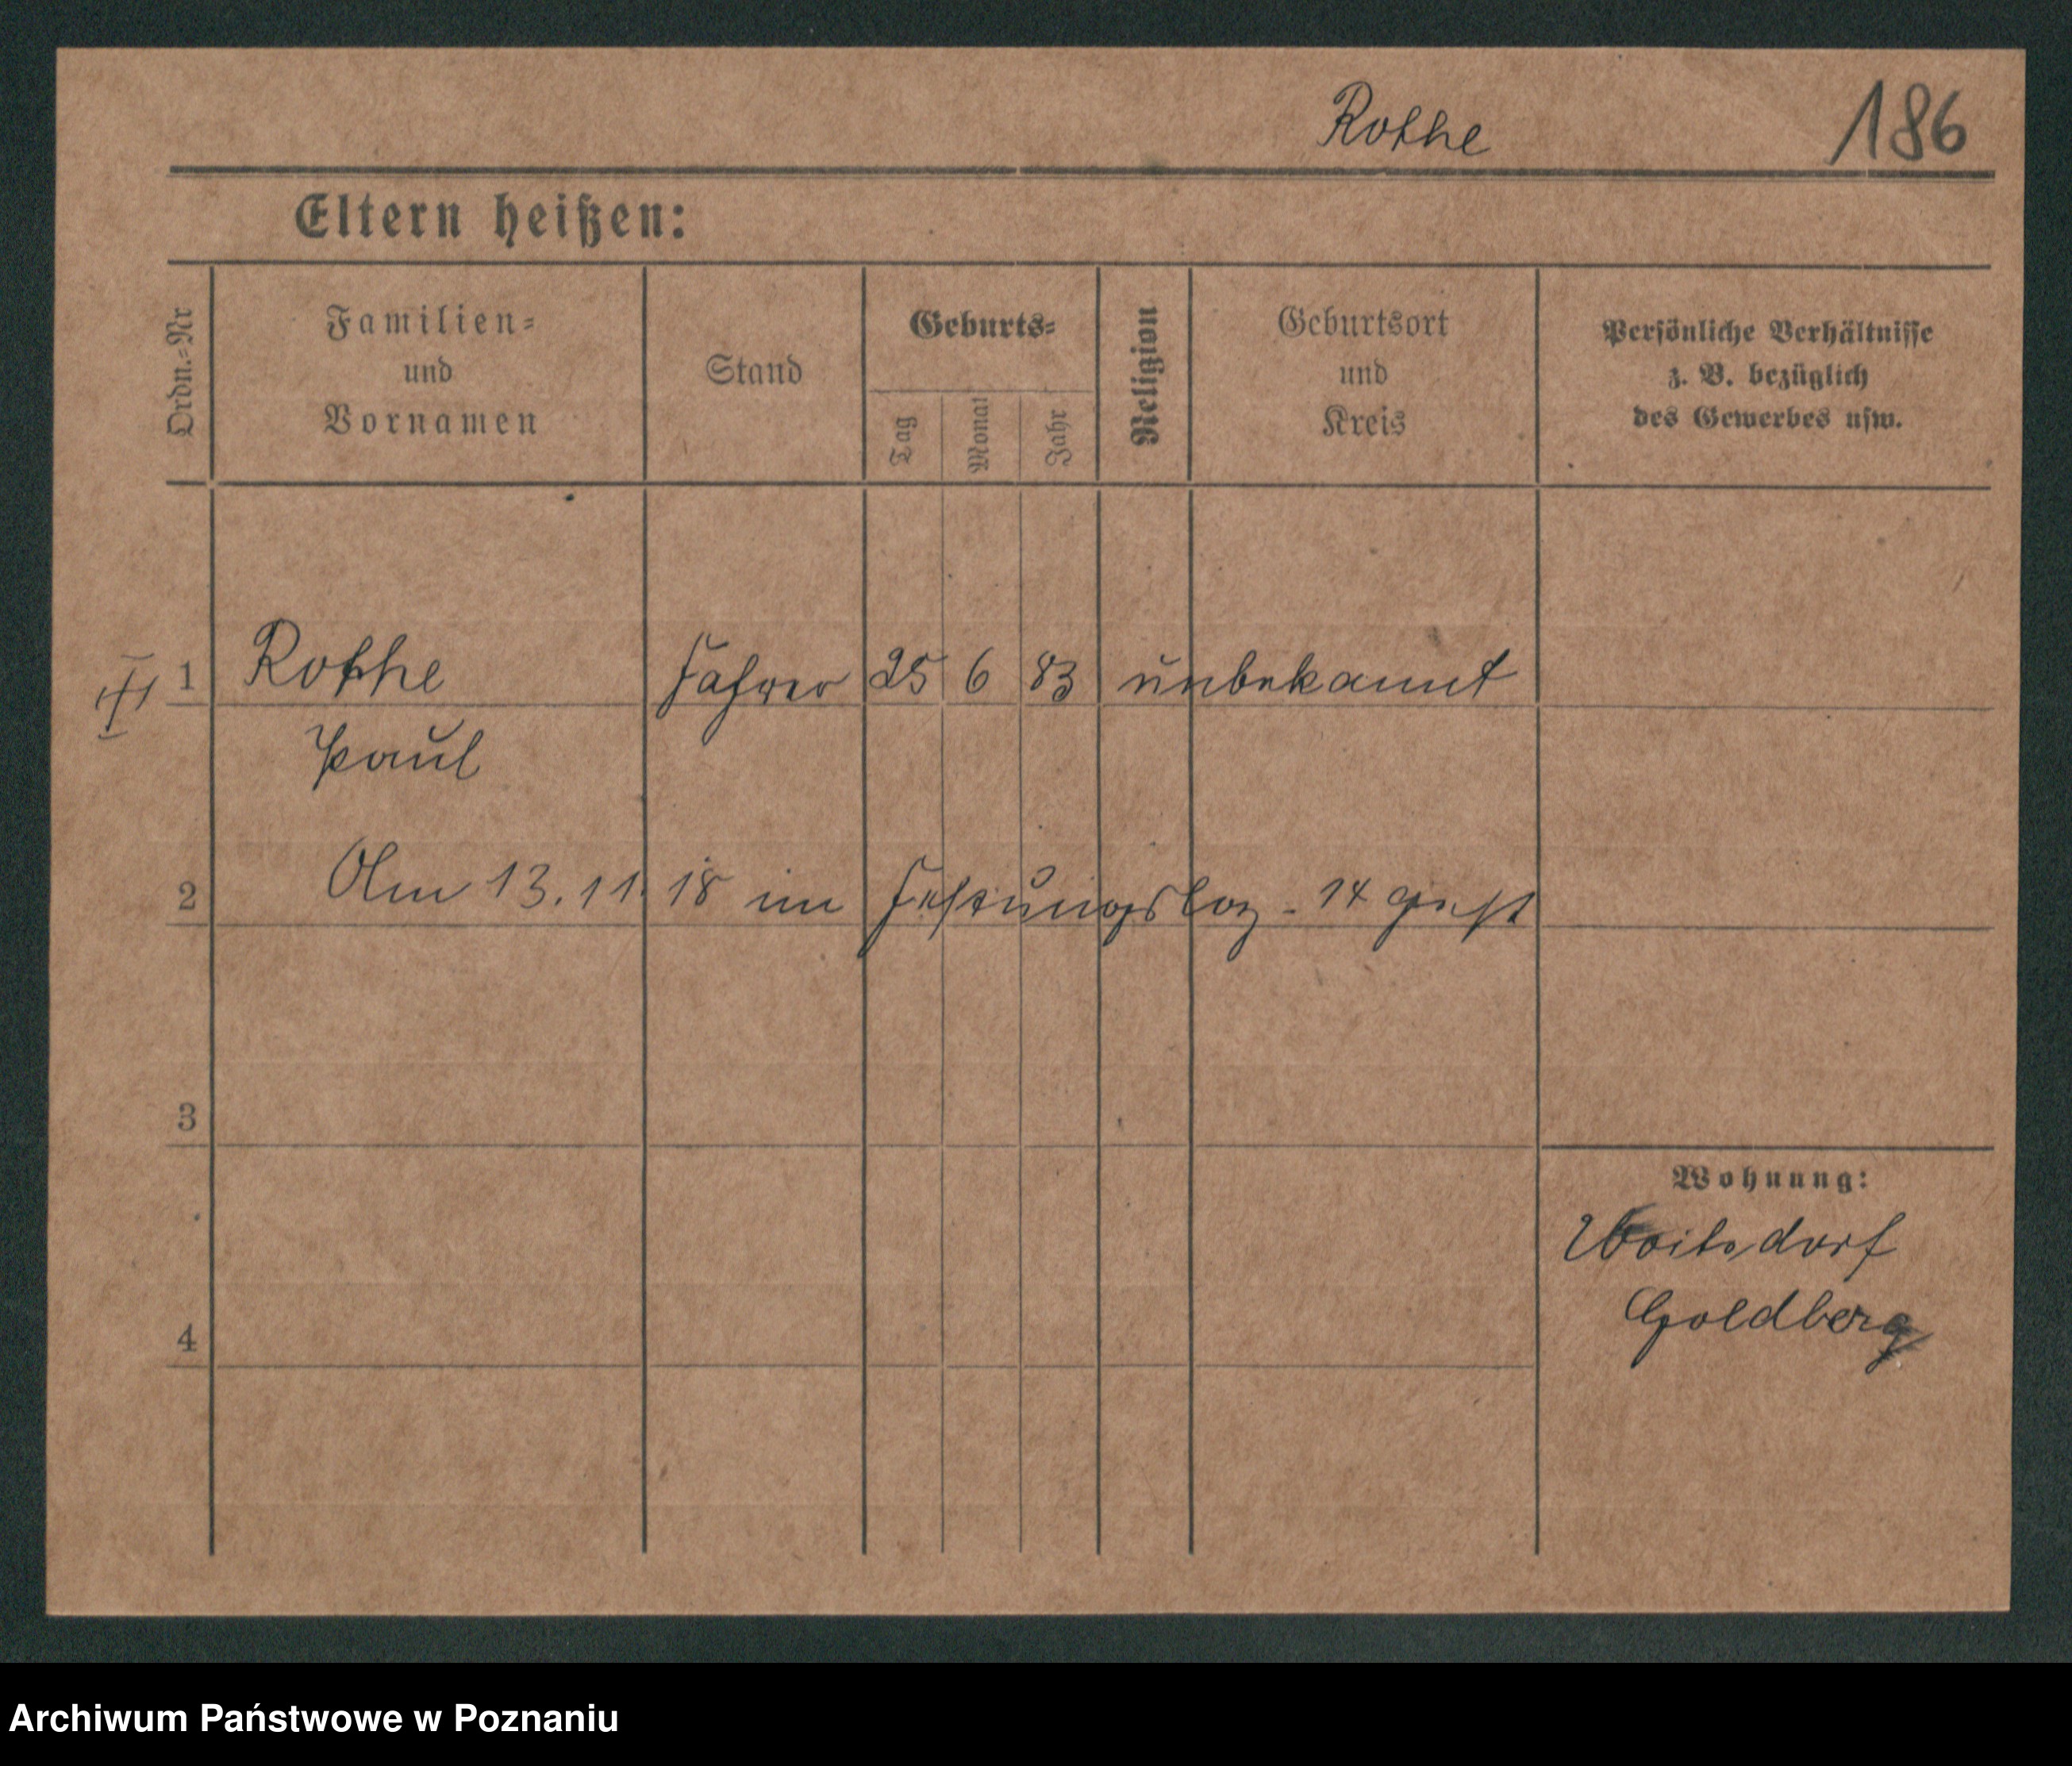 Rothe 186
Eltern heißen:
Ordn.=Nr
Familien=
und
Vornamen
Stand
Geburts=
Tag
Monat
Jahr
Religion
Geburtsort
und
Kreis
Persönliche Verhältnisse
z. B. bezüglich
des Gewerbes usw.
1 Rothe Fahrer 25 6 83 unbekannt
Paul
2 Am 13.11.18 im Festungslaz. 14 gest
3
Wohnung:
Woitsdorf
Goldberg
4
Archiwum Państwowe w Poznaniu